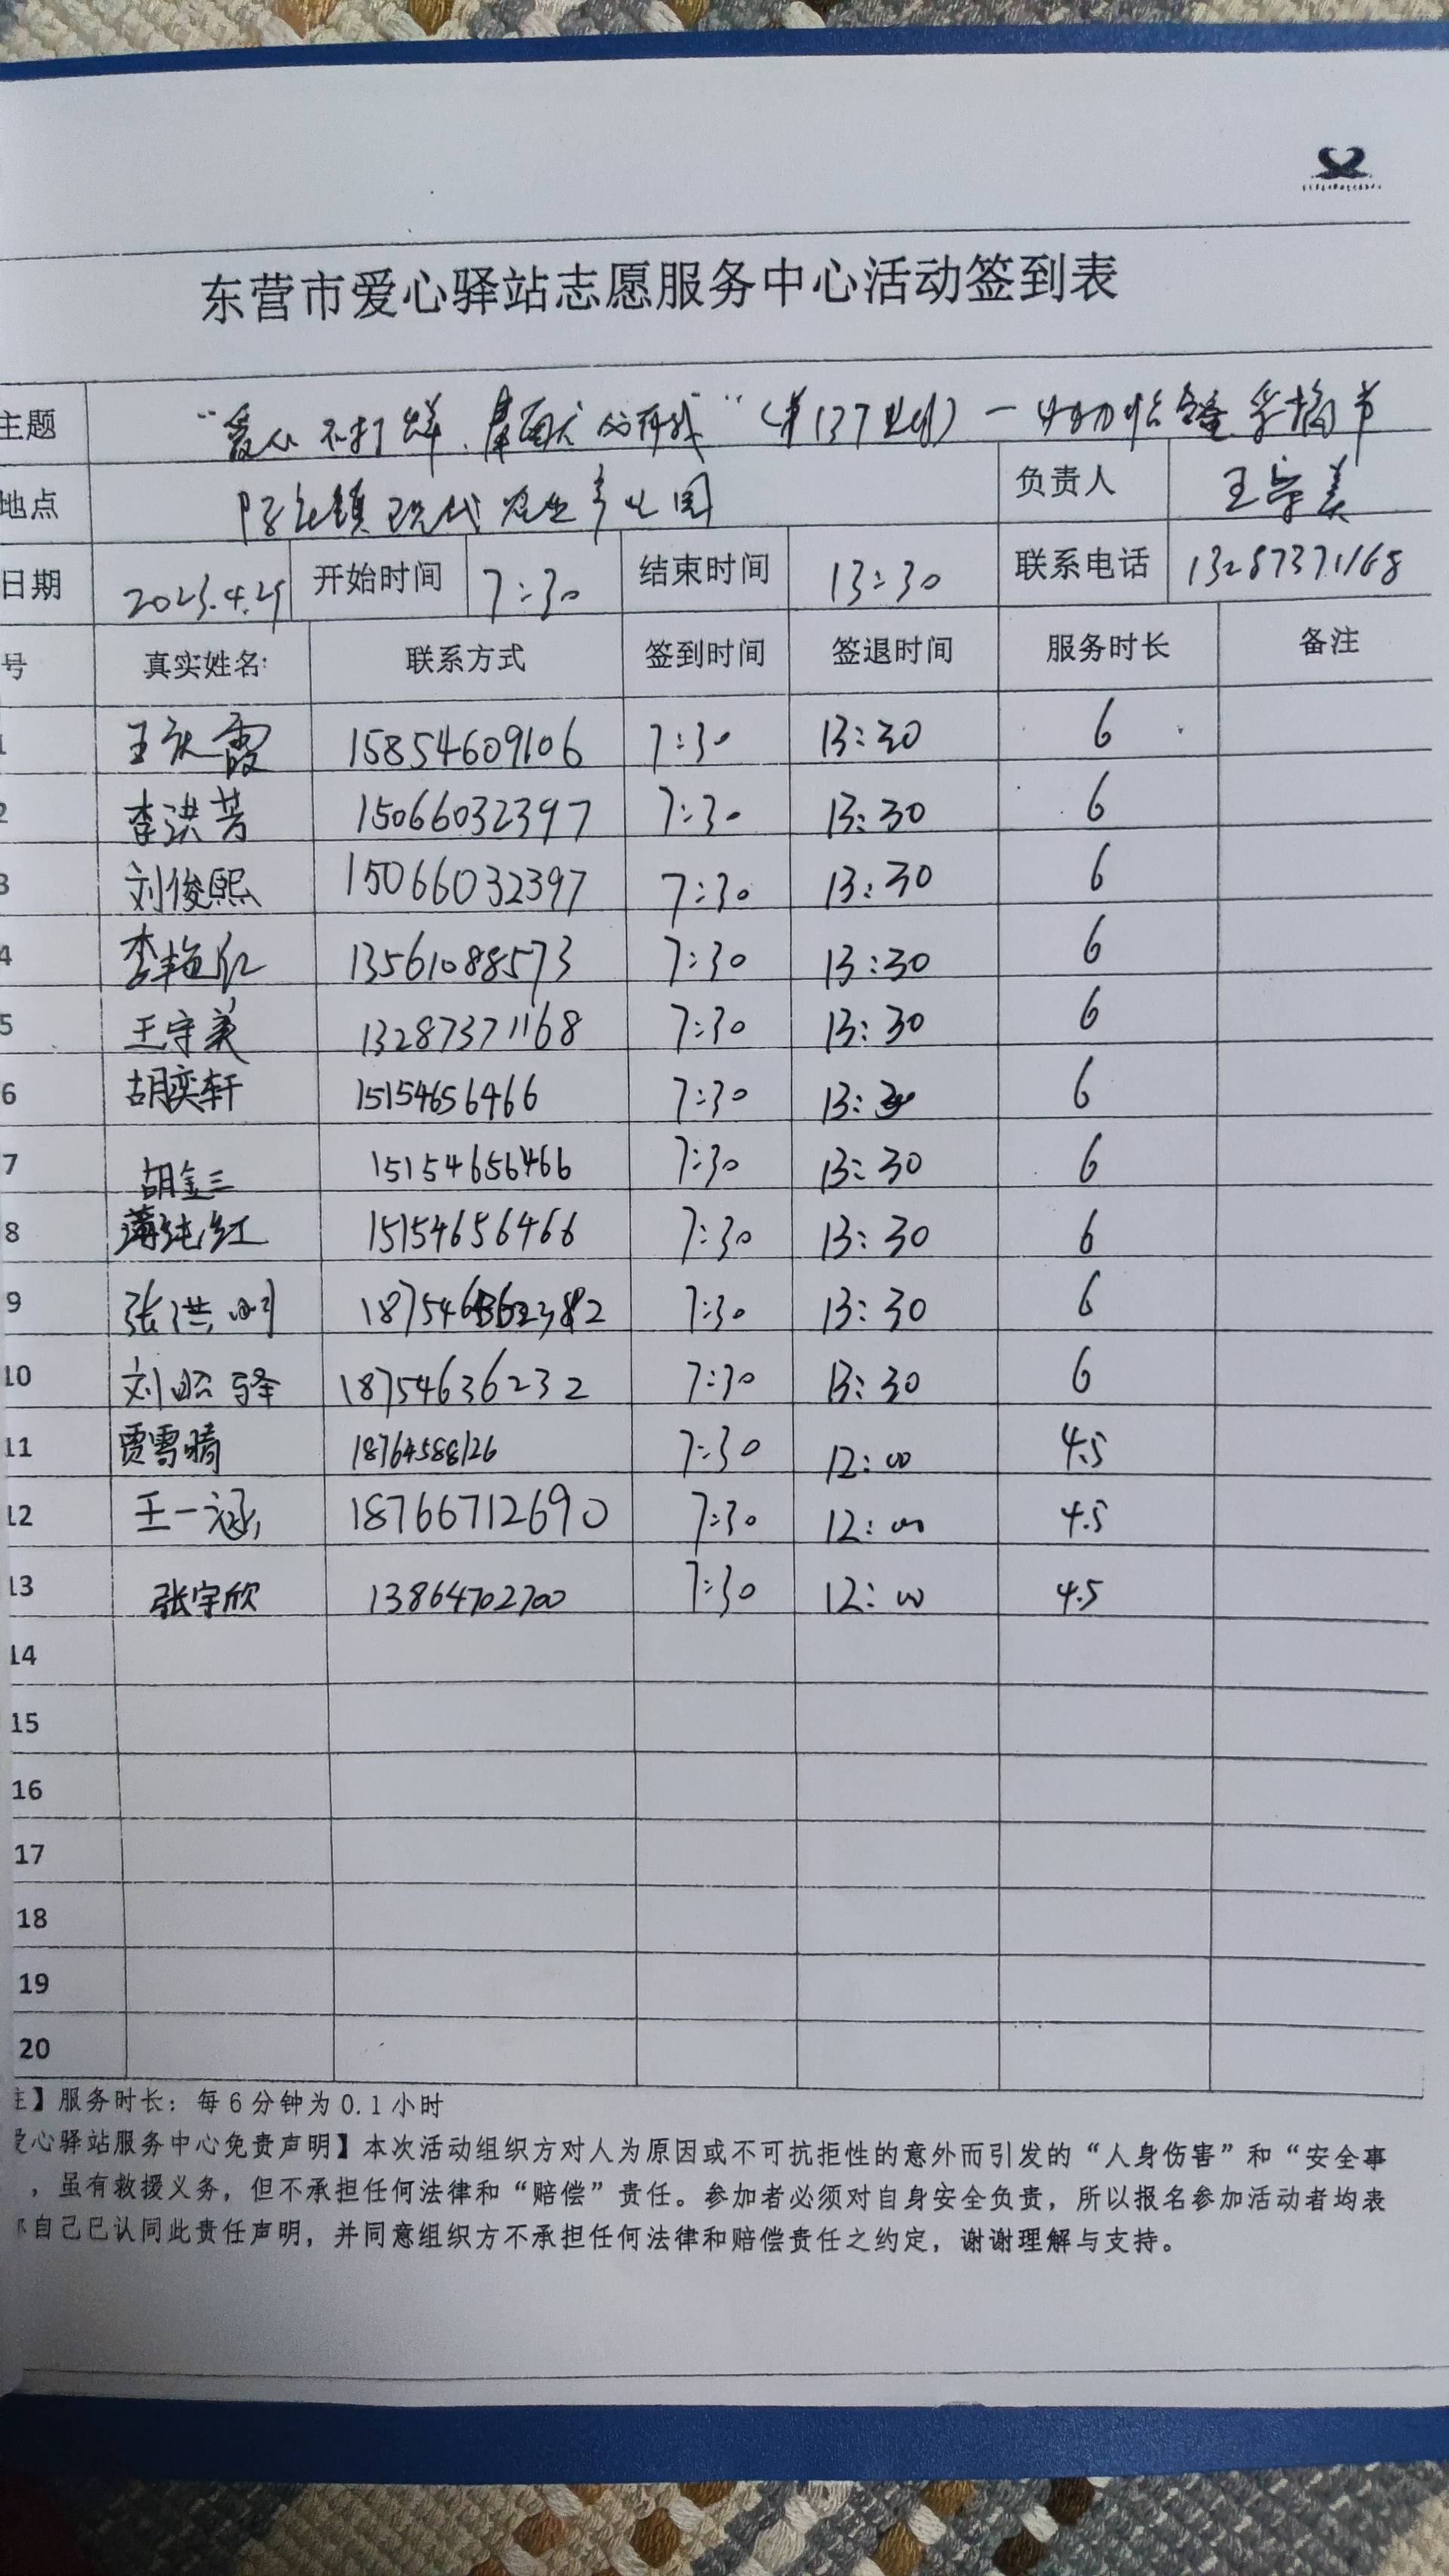 东营市爱心驿站志愿服务中心活动签到表
主题 "爱心不打烊 (第137 )
地点 镇现代农业产业园 负责人 王守美
日期 2023.4.29 开始时间 7:30 结束时间 13:30 联系电话 13287371168
号 真实姓名: 联系方式 签到时间 签退时间 服务时长 备注
1 王 霞 15854609106 7:30 13:30 6
2 李洪芳 15066032397 7:30 13:30 6
3 刘俊熙 15066032397 7:30 13:30 6
4 李艳红 13561088573 7:30 13:30 6
5 王守美 13287371168 7:30 13:30 6
6 胡奕轩 15154656466 7:30 13:30 6
7 胡金三 15154656466 7:30 13:30 6
8 薄纯红 15154656466 7:30 13:30 6
9 张洪明 7:30 13:30 6
10 刘昭驿 18754636232 7:30 13:30 6
11 贾雪晴 18764588126 7:30 12:00 4.5
12 王一涵 18766712690 7:30 12:00 4.5
13 张宇欣 13864702700 7:30 12:00 4.5
14
15
16
17
18
19
20
注】服务时长：每6分钟为0.1小时
爱心驿站服务中心免责声明】本次活动组织方对人为原因或不可抗拒性的意外而引发的“人身伤害”和“安全事
，虽有救援义务，但不承担任何法律和“赔偿”责任。参加者必须对自身安全负责，所以报名参加活动者均表
自己已认同此责任声明，并同意组织方不承担任何法律和赔偿责任之约定，谢谢理解与支持。